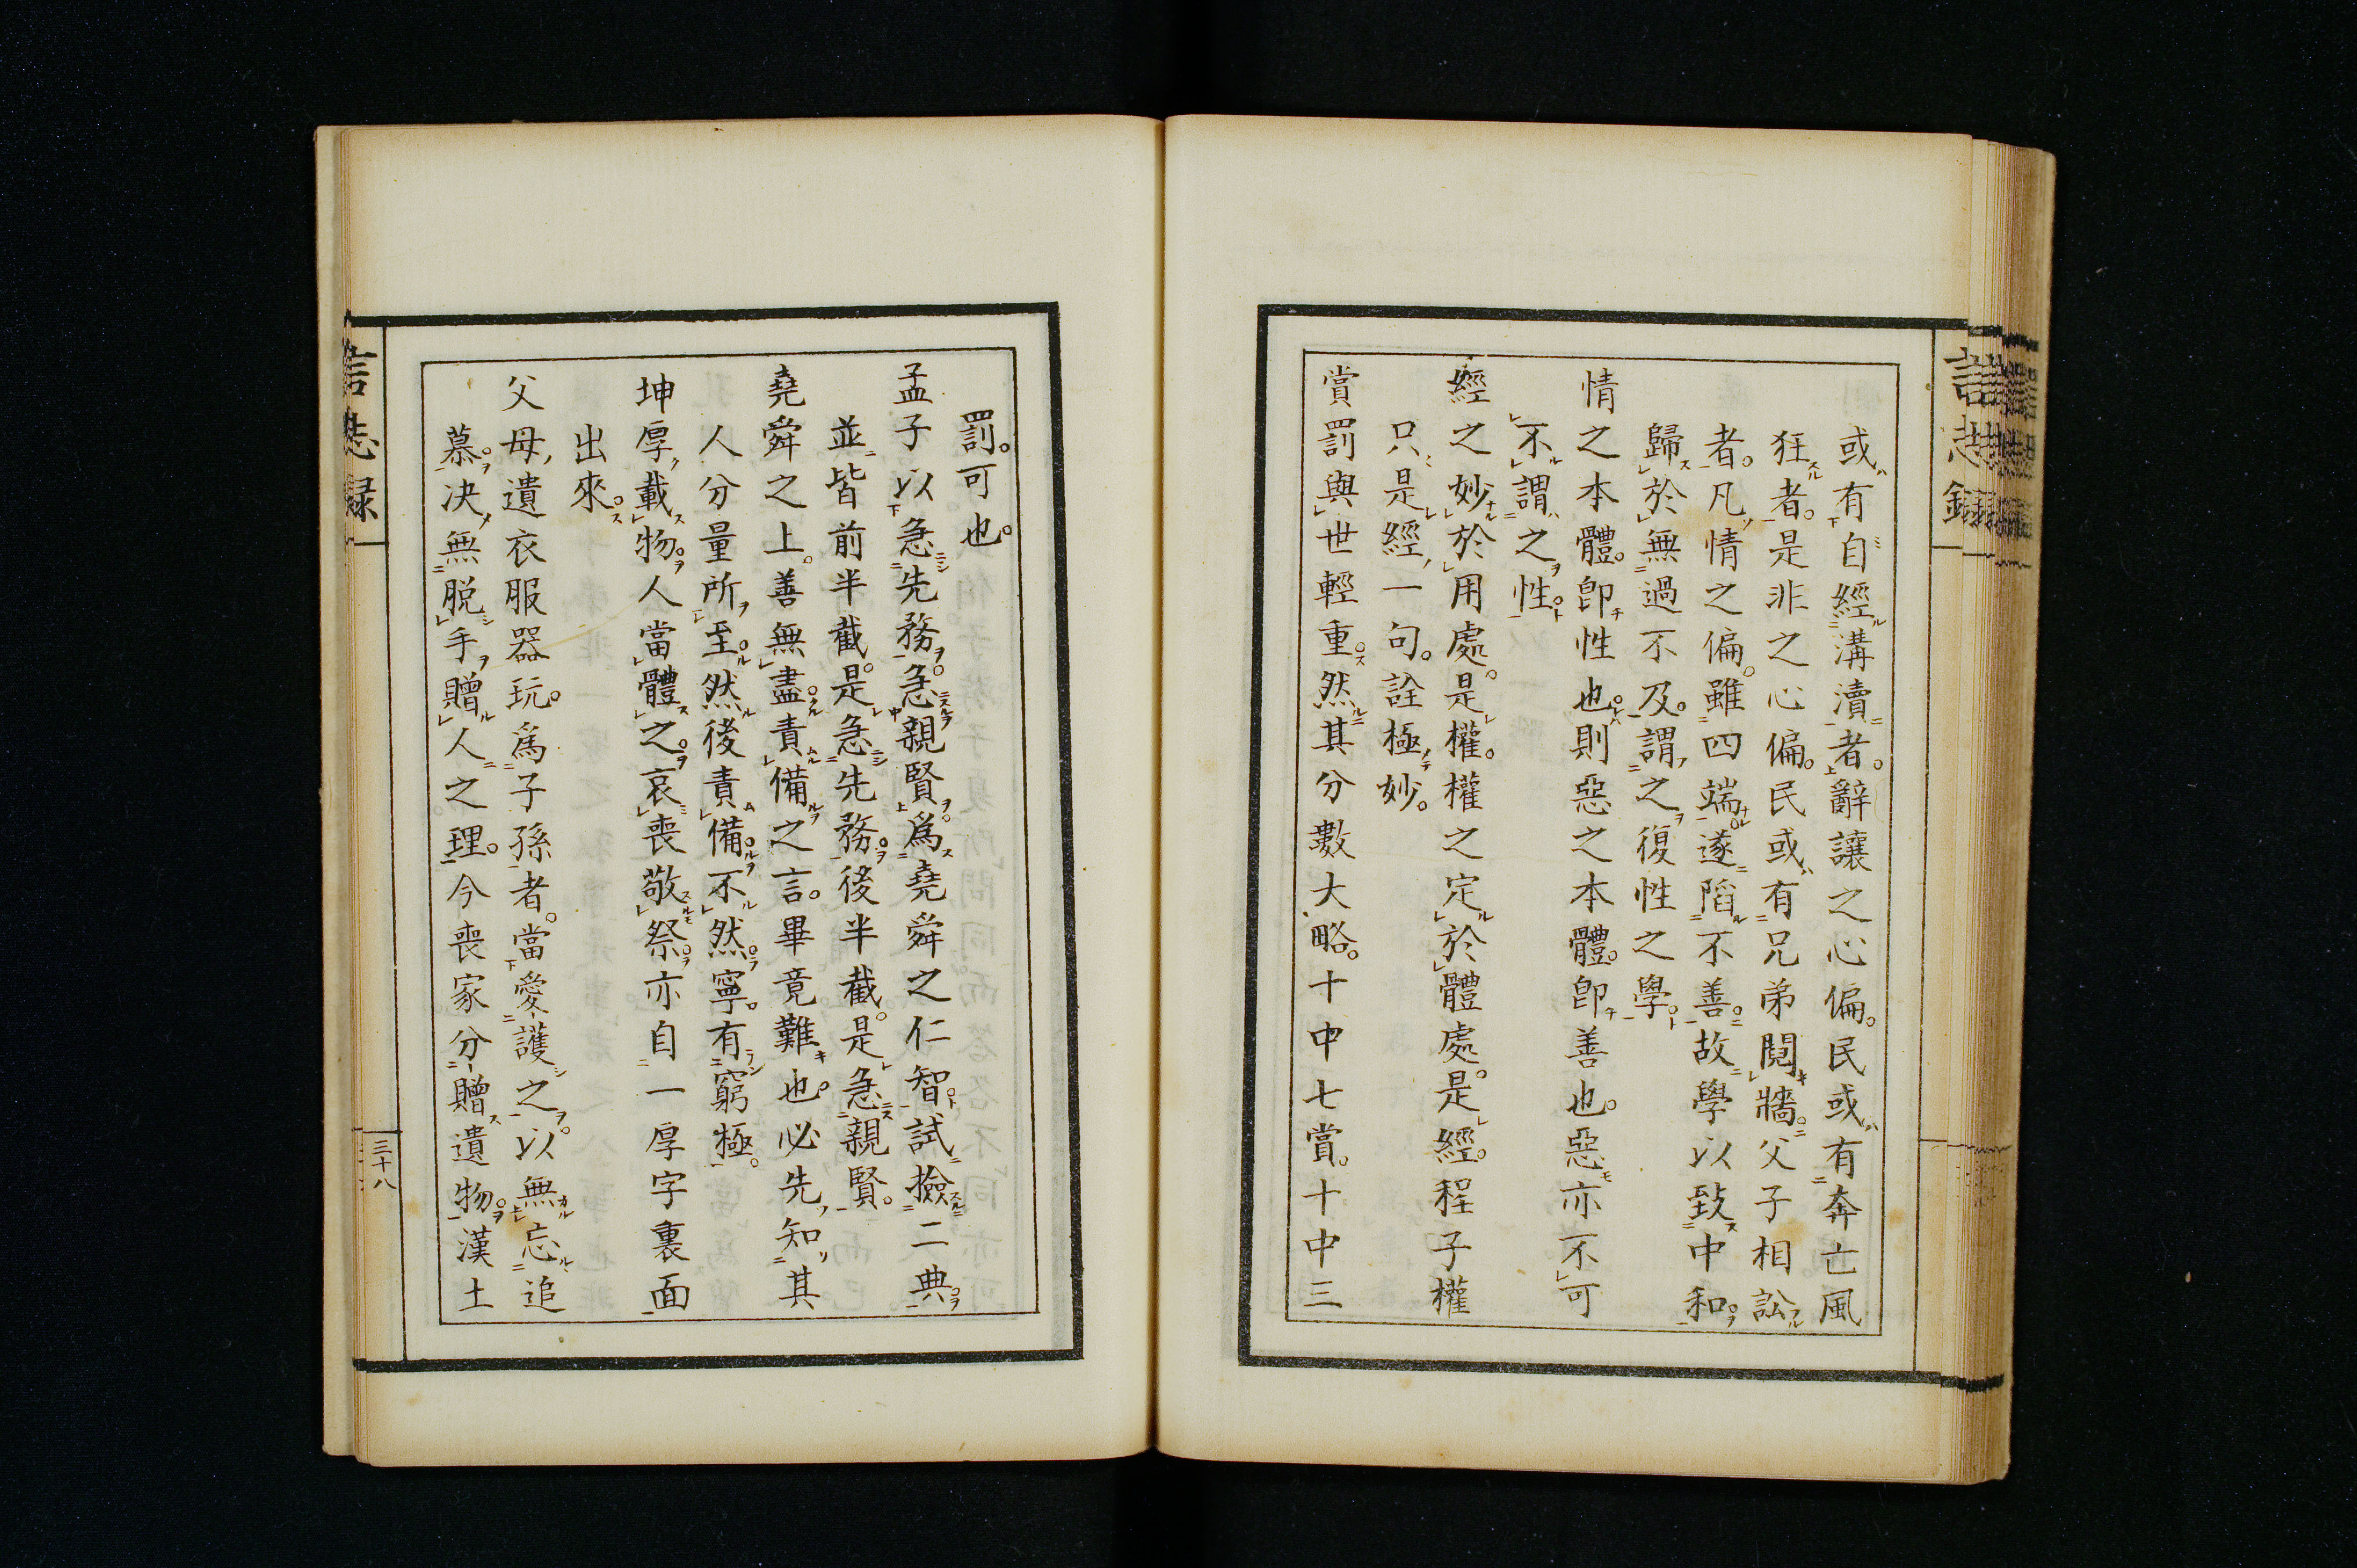 或有自經溝瀆者。辭讓之心偏。民或有奔亡風
狂者。是非之心偏。民或有兄弟鬩牆。父子相訟
者。凡情之偏。雖四端遂陷不善。故學以致中和。
歸於無過不及。謂之復性之學。
情之本體。卽性也。則惡之本體。卽善也。惡亦不可
不謂之性。
經之妙於用處。是權。權之定於體處。是經。程子權
只是經一句。詮極妙。
賞罰與世輕重。然其分數大略。十中七賞。十中三
罰。可也。
孟子以急先務。急親賢。爲堯舜之仁智。試撿二典。
並皆前半截。是急先務。後半截。是急親賢。
堯舜之上。善無盡。責備之言。畢竟難也。必先知其
人分量所至。然後責備。不然。寧有窮極。
坤厚載物。人當體之。哀喪敬祭。亦自一厚字裏面
出來。
父母遺衣服器玩。爲子孫者。當愛護之。以無忘追
慕。決無脱手贈人之理。今喪家分贈遺物。漢土
言志録
三十八
言志録